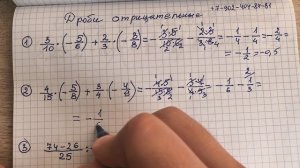 Дроби отрицательные +7-902-404-84-81
1) 3/10 · (-5/6) + 2/3 · (-3/8) = - 3·5/10·6 - 2·3/3·8 = - 1/4 - 1/4 = - 2/4 =
= - 1/2 = -0,5
2) 4/15 · (-5/8) + 3/4 · (-4/9) = - 4·5/15·8 - 3·4/4·9 = - 1/6 - 1/3
= - 1
3) 74-26/25